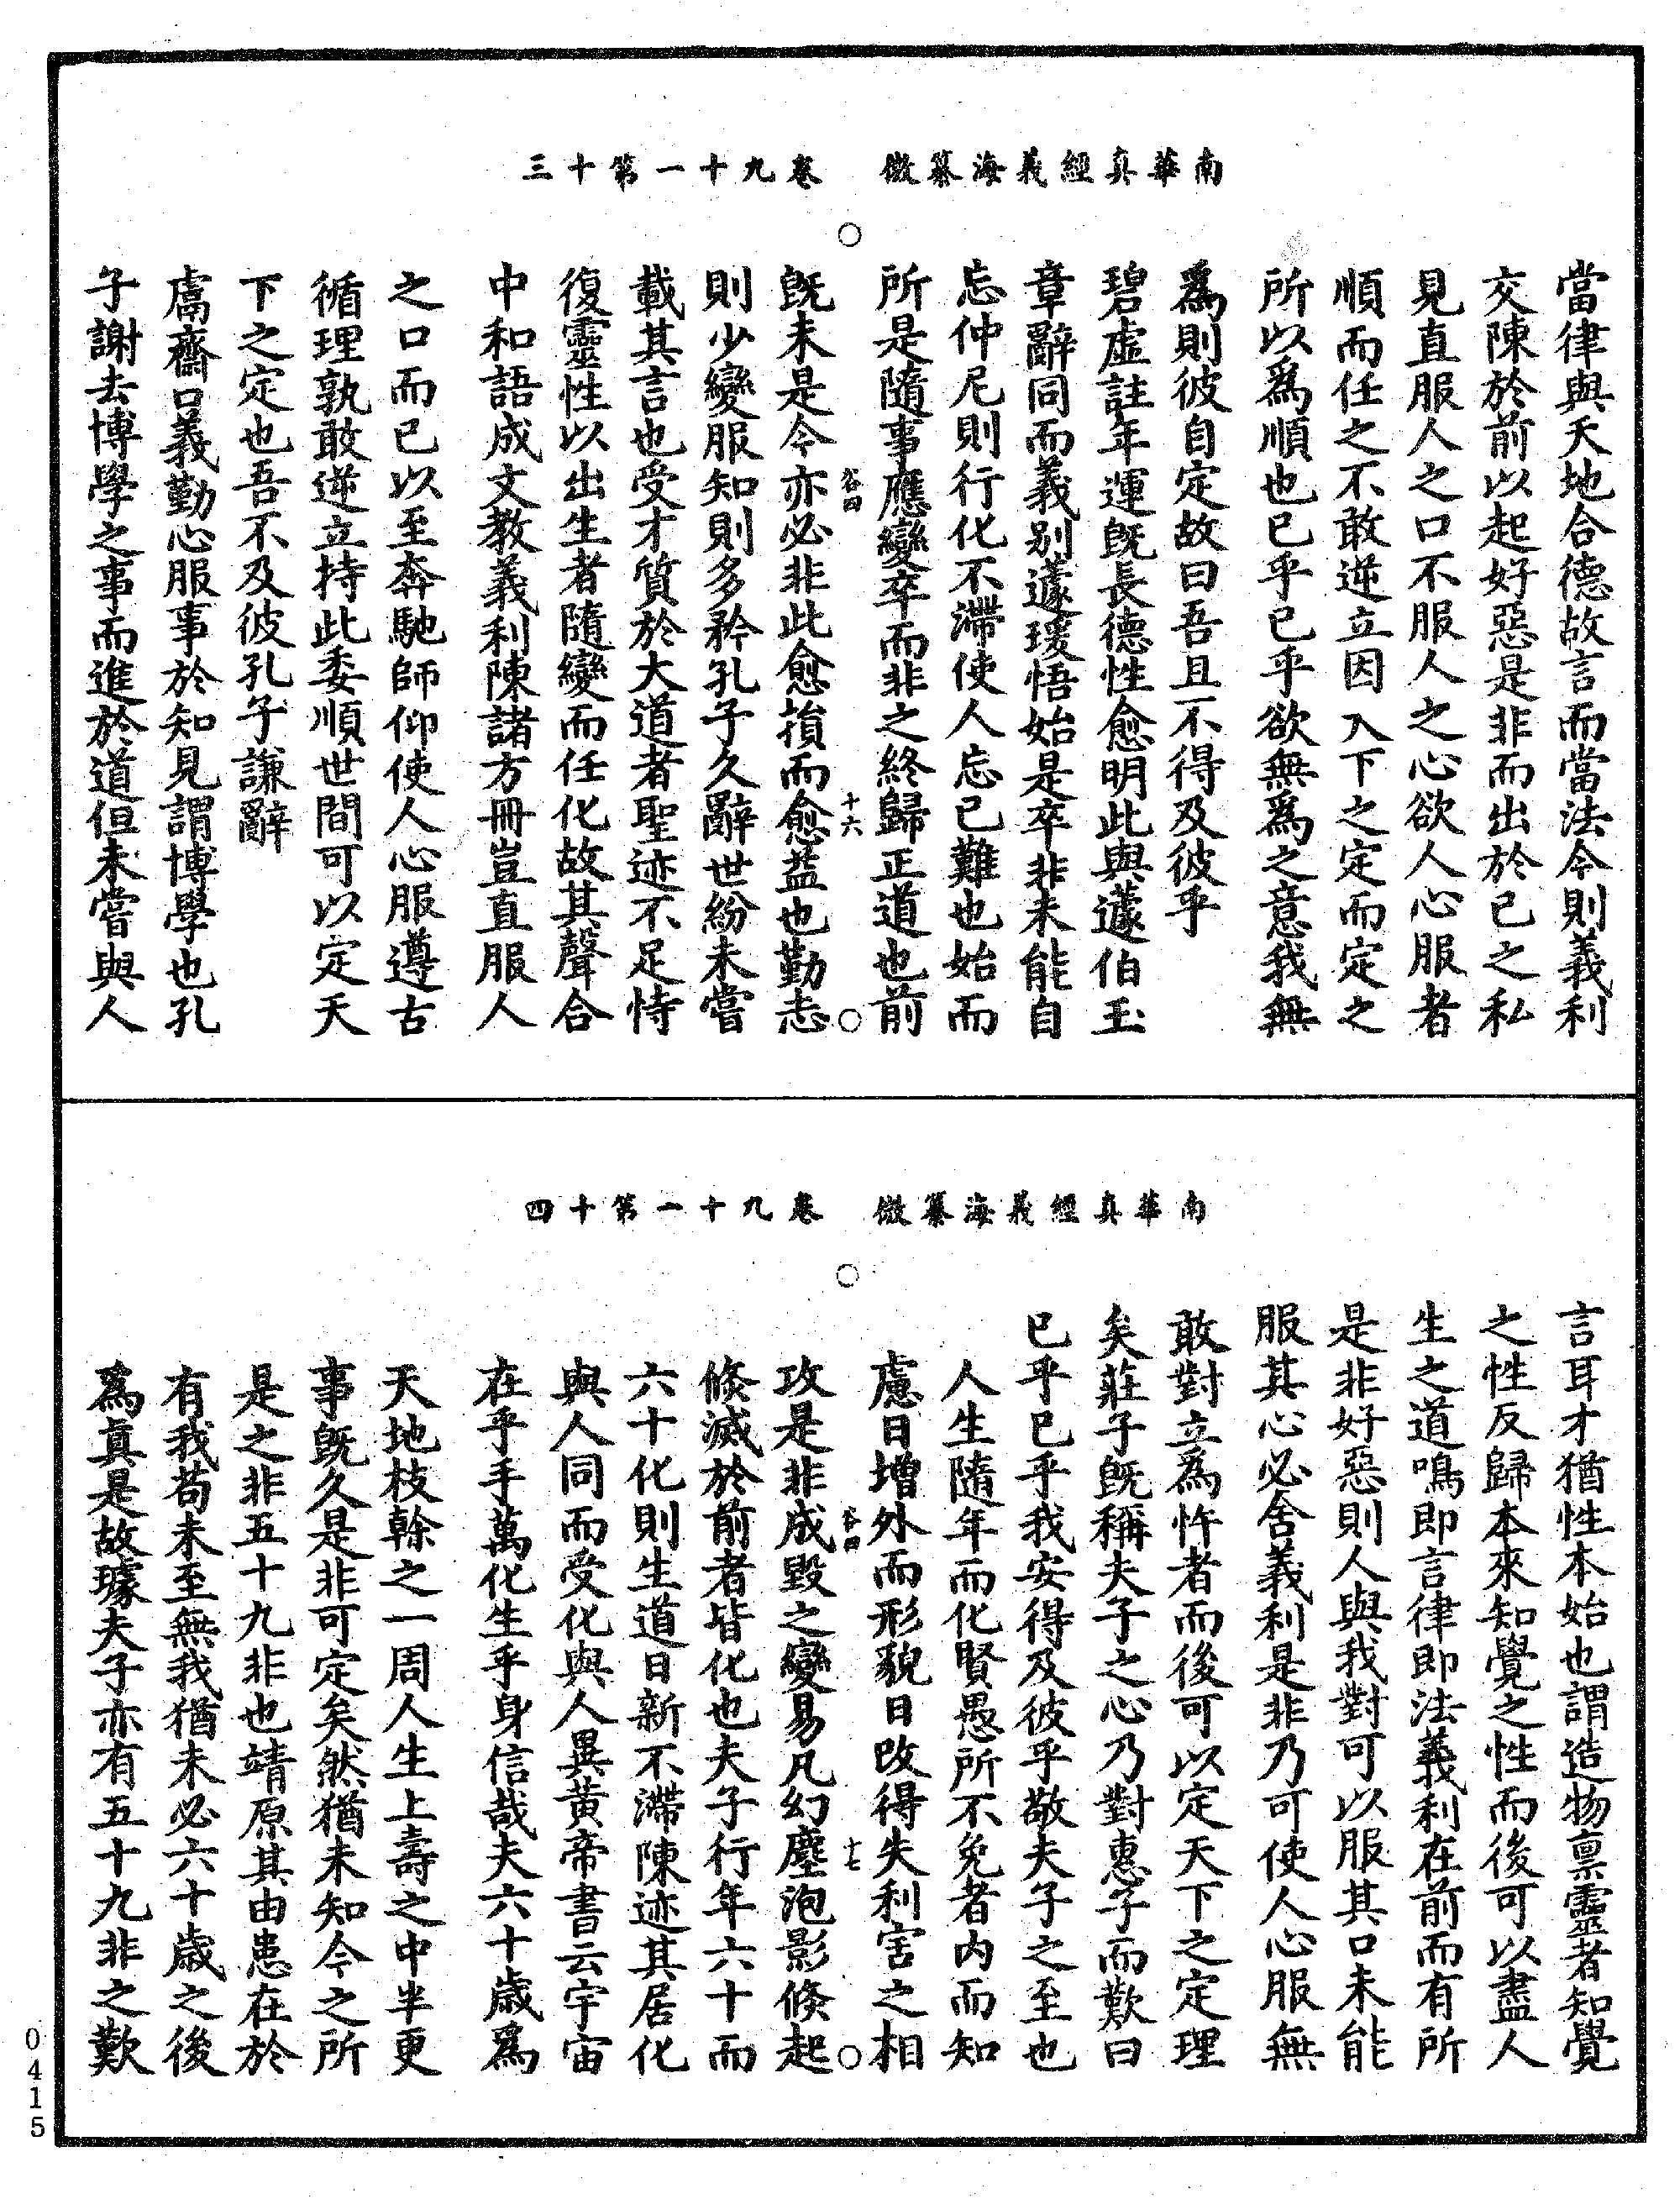 南華真經義海纂微　卷九十一第十三
當律與天地合德故言而當法今則義利
交陳於前以起好惡是非而出於己之私
見直服人之口不服人之心欲人心服者
順而任之不敢逆立因入下之定而定之
所以爲順也已乎已乎欲無爲之意我無
爲則彼自定故曰吾且不得及彼乎
碧虛註年運旣長德性愈明此與蘧伯玉
章辭同而義别蘧瑗悟始是卒非未能自
忘仲尼則行化不滯使人忘已難也始而
所是隨事應變卒而非之終歸正道也前
谷四　十六
旣未是今亦必非此愈損而愈益也勤志
則少變服知則多矜孔子久辭世紛未嘗
載其言也受才質於大道者聖迹不足恃
復靈性以出生者隨變而任化故其聲合
中和語成文教義利陳諸方冊豈直服人
之口而已以至奔馳師仰使人心服遵古
循理孰敢逆立持此委順世間可以定天
下之定也吾不及彼孔子謙辭
鬳齋口義勤心服事於知見謂博學也孔
子謝去博學之事而進於道但未嘗與人
南華真經義海纂微　卷九十一第十四
言耳才猶性本始也謂造物禀靈者知覺
之性反歸本來知覺之性而後可以盡人
生之道鳴即言律即法義利在前而有所
是非好惡則人與我對可以服其口未能
服其心必舍義利是非乃可使人心服無
敢對立爲忤者而後可以定天下之定理
矣莊子旣稱夫子之心乃對惠子而歎曰
已乎已乎我安得及彼乎敬夫子之至也
人生隨年而化賢愚所不免者内而知
慮日增外而形貌日改得失利害之相
谷四　十七
攻是非成毀之變易凡幻塵泡影倏起
倏滅於前者皆化也夫子行年六十而
六十化則生道日新不滯陳迹其居化
與人同而受化與人異黄帝書云宇宙
在乎手萬化生乎身信哉夫六十歲爲
天地枝榦之一周人生上壽之中半更
事旣久是非可定矣然猶未知今之所
是之非五十九非也靖原其由患在於
有我苟未至無我猶未必六十歲之後
爲真是故璩夫子亦有五十九非之歎
0415